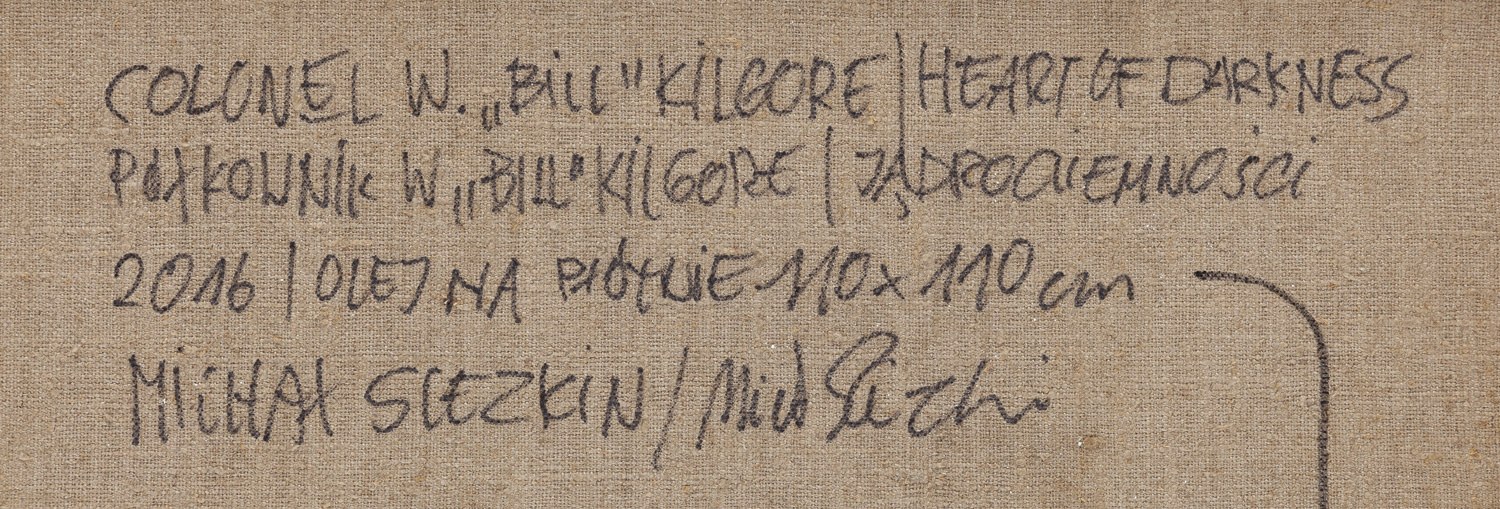 COLONEL W. „BILL" KILGORE | HEART OF DARKNESS
PUŁKOWNIK W „BILL" KILGORE | JĄDRO CIEMNOŚCI
2016 | OLEJ NA PŁÓTNIE 110 x 110 cm
MICHAŁ SLEZKIN /